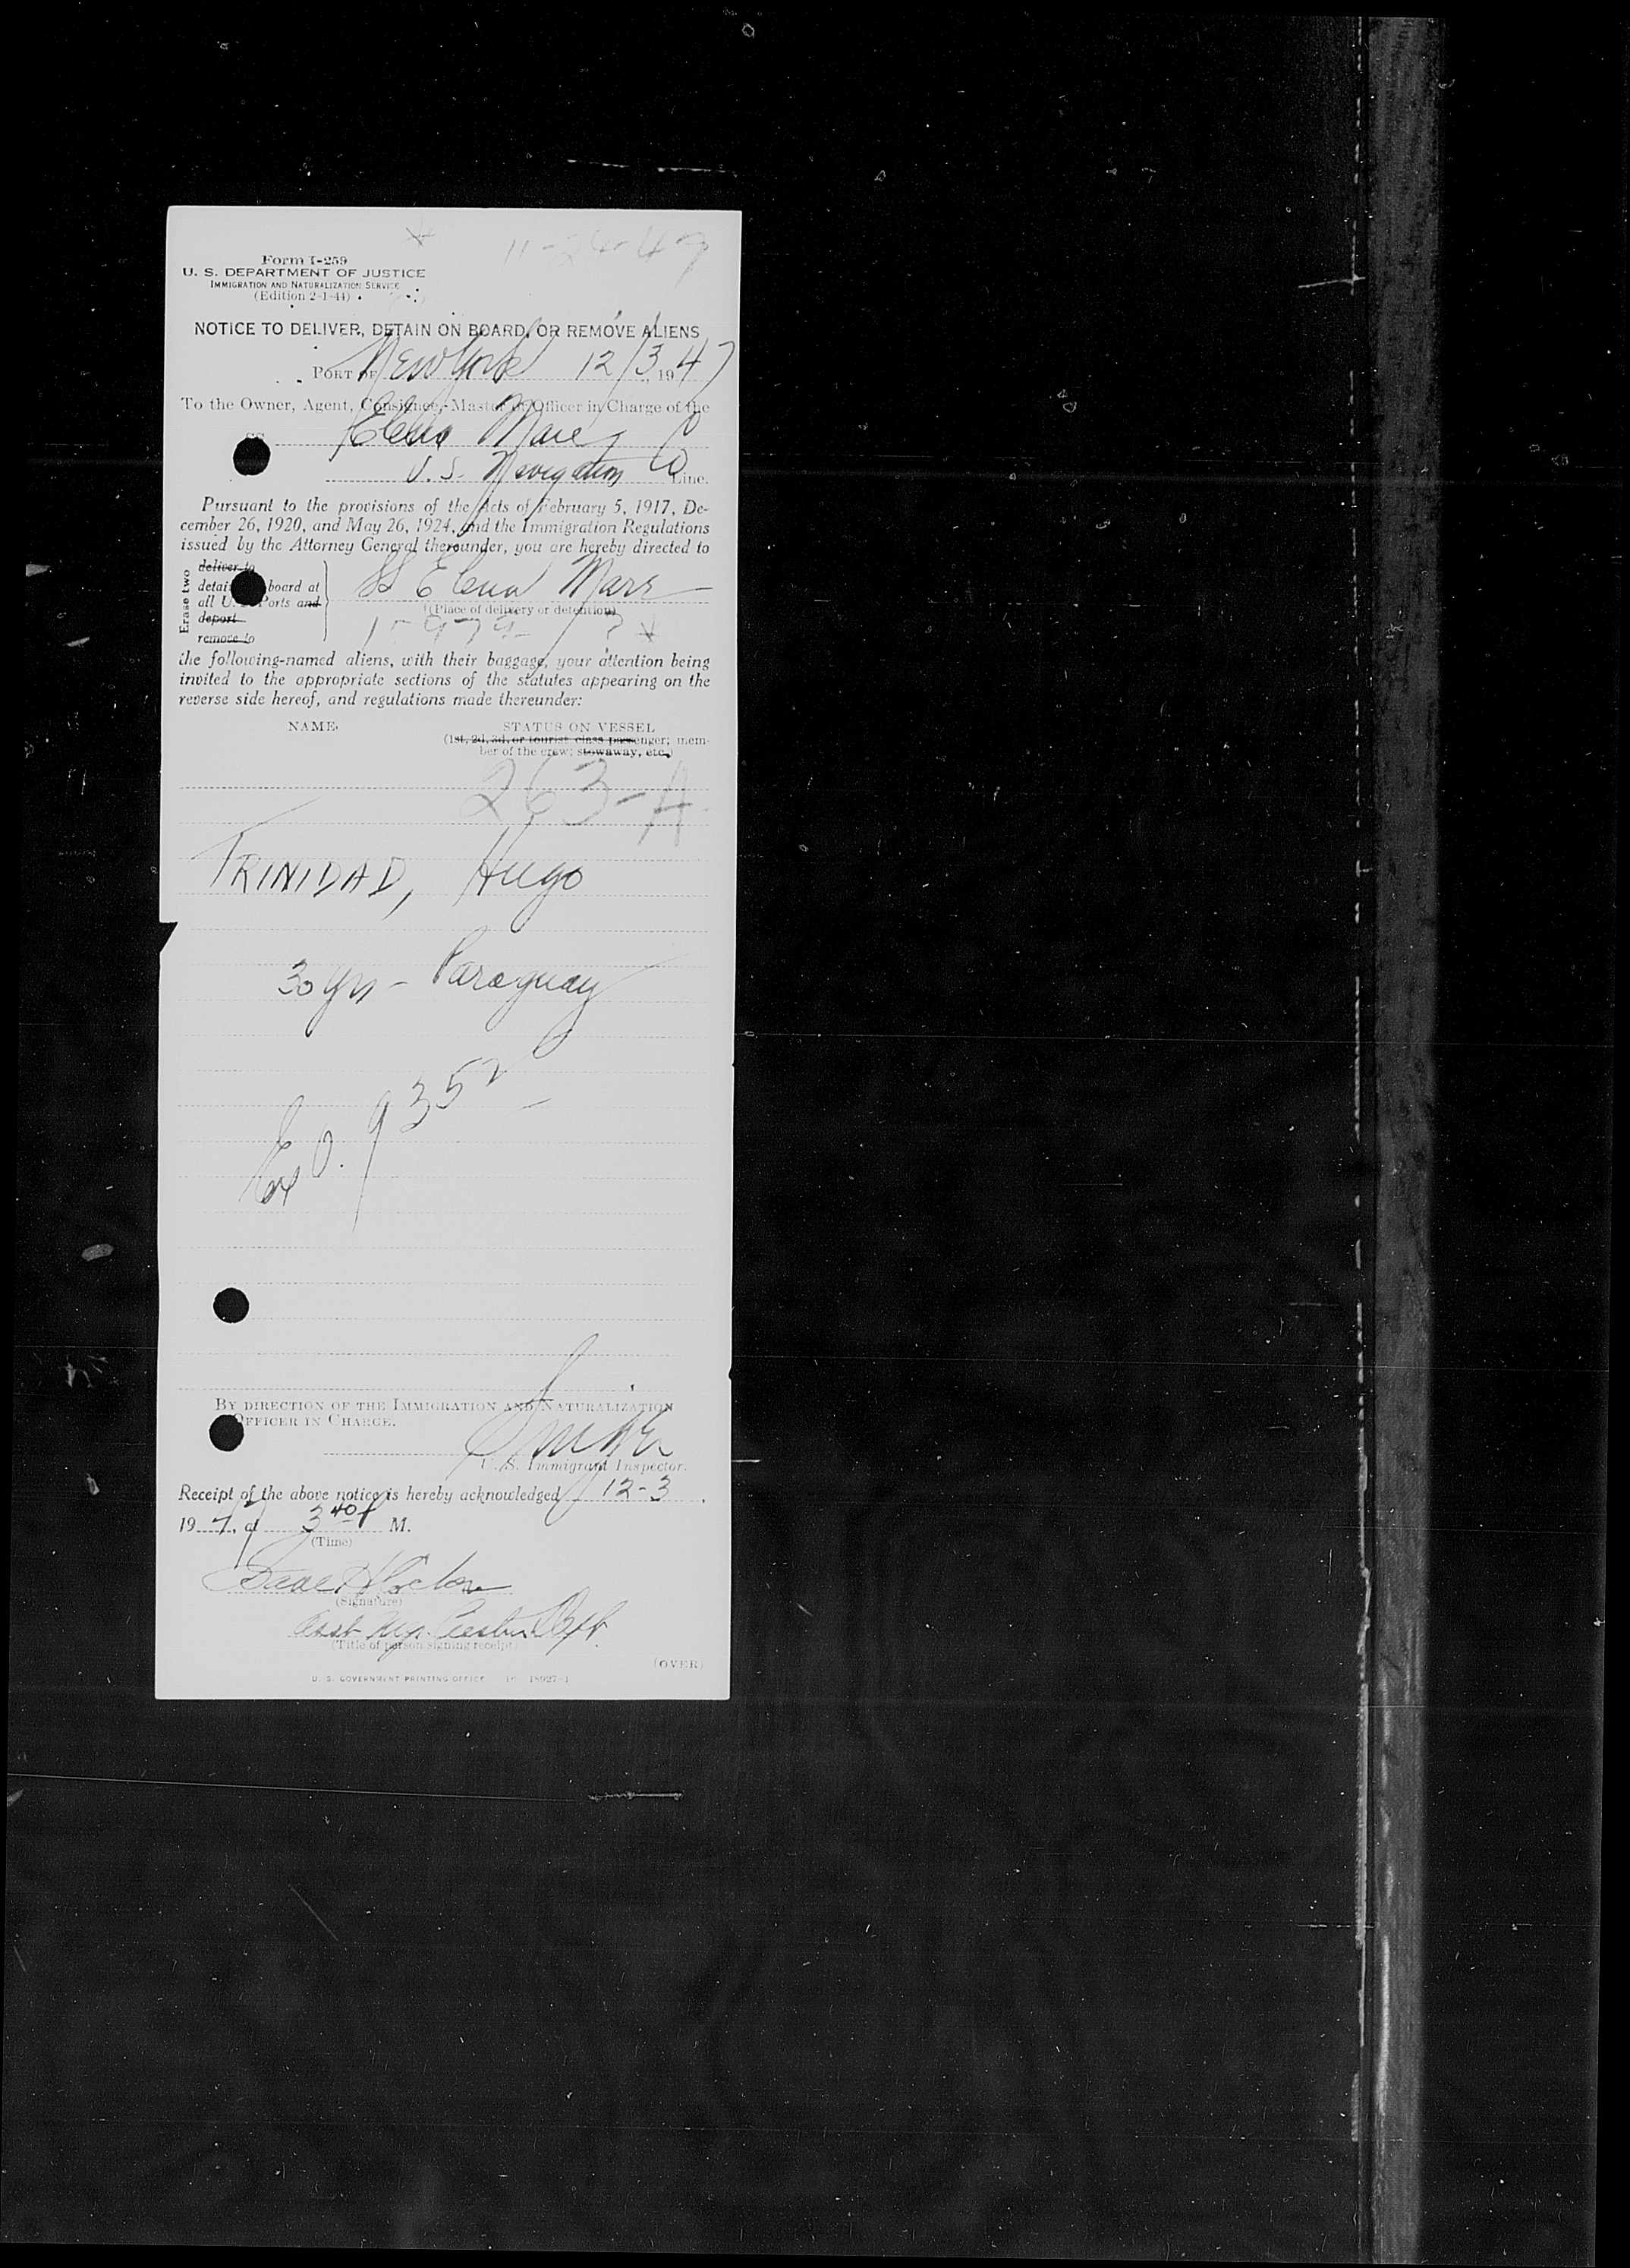 11-24-47
Form I-259
U. S. DEPARTMENT OF JUSTICE
IMMIGRATION AND NATURALIZATION SERVICE
(Edition 2-1-44)
NOTICE TO DELIVER, DETAIN ON BOARD, OR REMOVE ALIENS
PORT OF New York 12/3, 1947
To the Owner, Agent, Consignee, Master or Officer in Charge of the
SS Elena
U. S. Navigation Co Line.
Pursuant to the provisions of the Acts of February 5, 1917, De-
cember 26, 1920, and May 26, 1924, and the Immigration Regulations
issued by the Attorney General thereunder, you are hereby directed to
Erase two
deliver to
detain board at
all U. Ports and
deport
remove to
SS Elena
(Place of delivery or detention)
the following-named aliens, with their baggage, your attention being
invited to the appropriate sections of the statutes appearing on the
reverse side hereof, and regulations made thereunder:
NAME STATUS ON VESSEL
(1st, 2d, 3d, or tourist class passenger; mem-
ber of the crew; stowaway, etc.)
263-A
TRINIDAD, Hugo
30 yrs - Paraguay
9352
BY DIRECTION OF THE IMMIGRATION AND NATURALIZATION
OFFICER IN CHARGE.
U. S. Immigrant Inspector.
Receipt of the above notice is hereby acknowledged 12-3,
1947, at 3 40 P M.
(Time)
(Signature)
Asst Mgr. Dept.
(Title of person signing receipt)
(OVER)
U. S. GOVERNMENT PRINTING OFFICE 16-18927-1